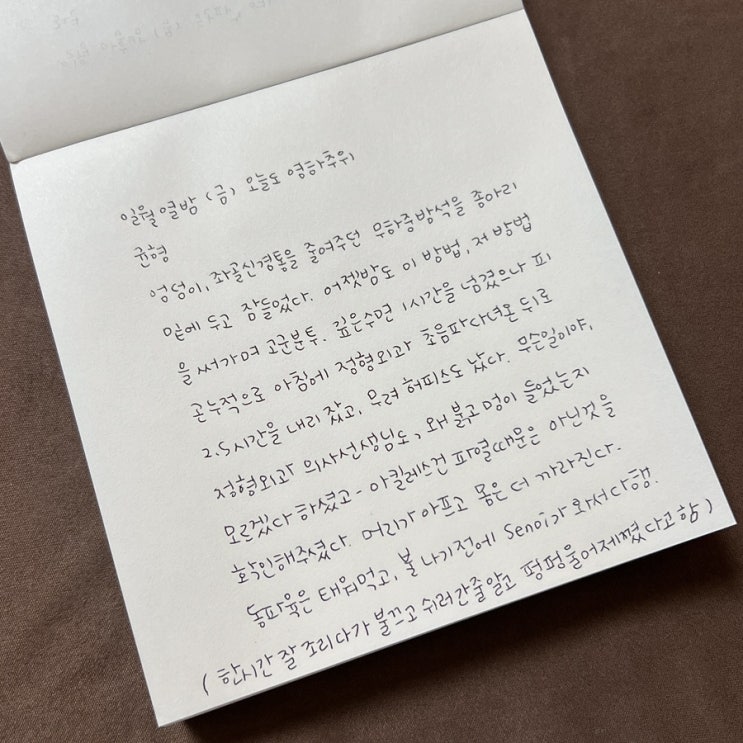 일월열밤 (금) 오늘도 영하추위
균형
엉덩이, 좌골신경통을 줄여주던 무하중방석을 종아리
밑에 두고 잠들었다. 어젯밤도 이 방법, 저 방법
을 써가며 고군분투. 깊은수면 1시간을 넘겼으나 피
곤누적으로 아침에 정형외과 초음파다녀온 뒤로
2.5시간을 내리 잤고, 무려 허피스도 났다. 무슨일이야,
정형외과 의사선생님도, 왜 붉고 멍이 들었는지
모르겠다 하셨고 - 아킬레스건 파열때문은 아닌것을
확인해주셨다. 머리가 아프고 몸은 더 까라진다.
동파육은 태워먹고, 불 나기전에 Senoi가 와서 다행.
(한시간 잘 조리다가 불끄고 쉬러간줄알고 펑펑울어제꼈다고함)